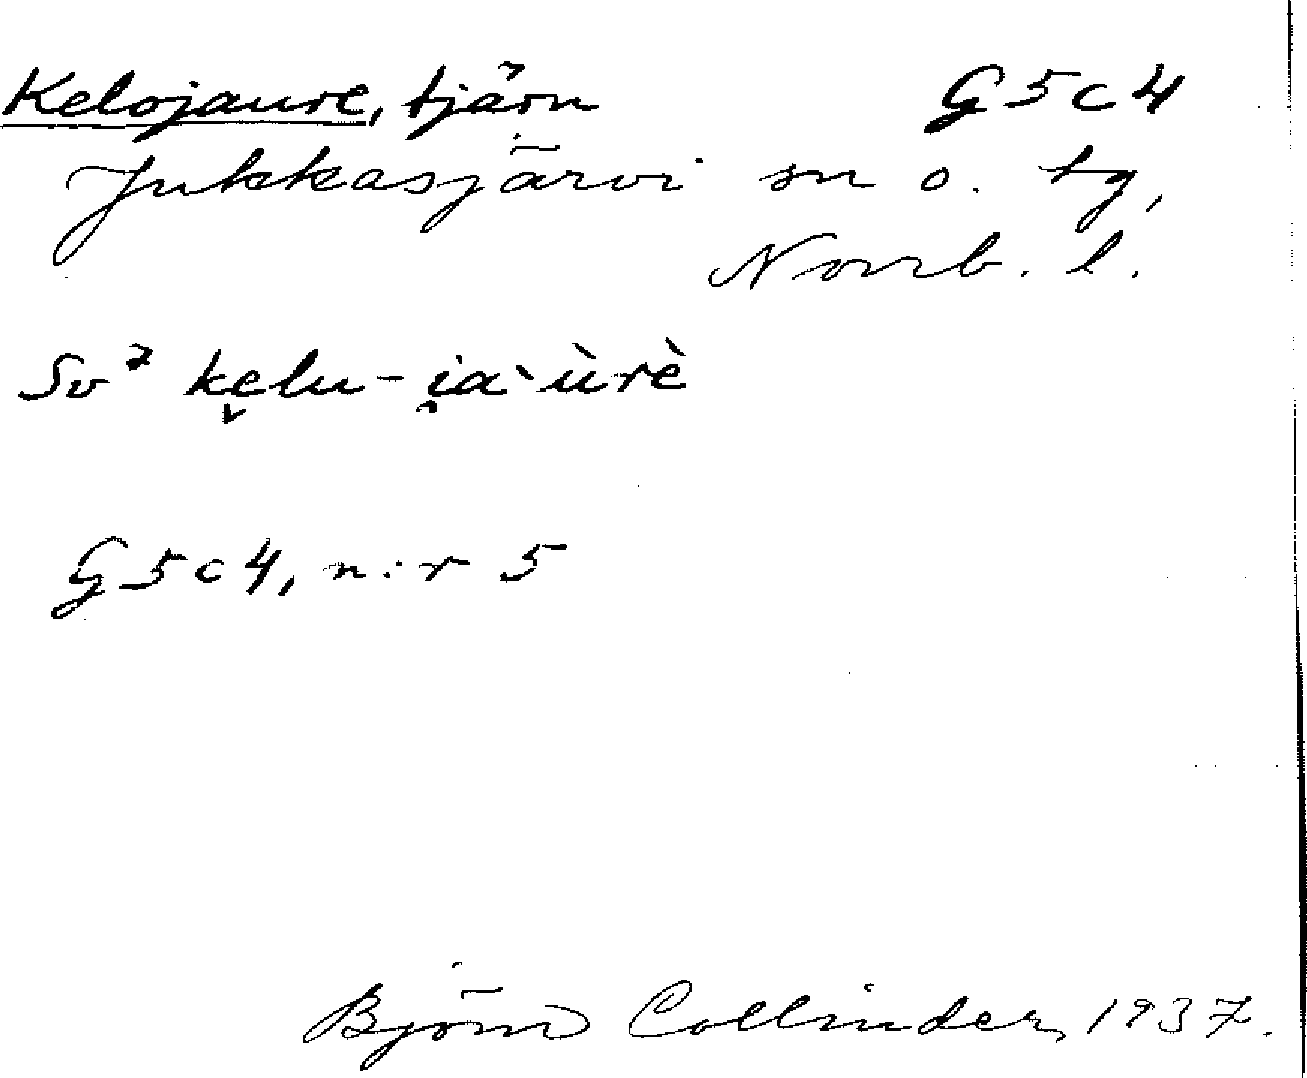 Kelojaure, tjärn G 5 c 4
Jukkasjärvi sn o. tg,
Norrb. l.
Sv² ke̬lu-i̯a`ùrè
G 5 c 4, n:r 5
Björn Collinder, 1937.